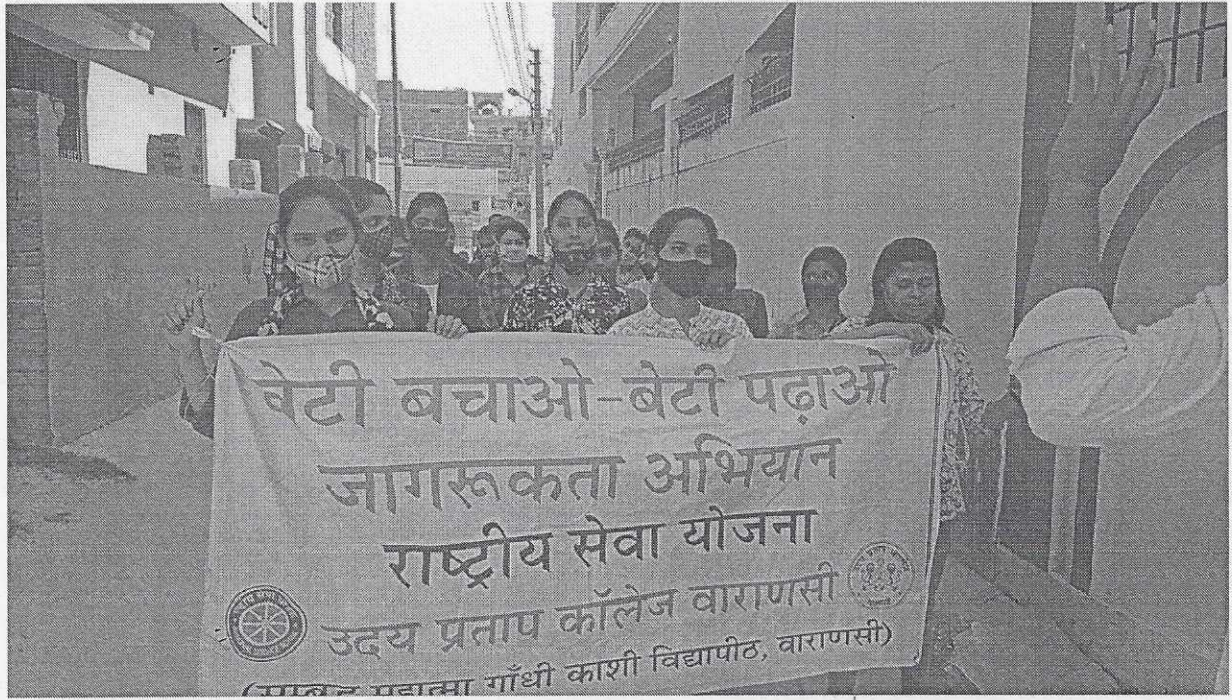 बेटी बचाओ-बेटी पढ़ाओ
जागरूकता अभियान
राष्ट्रीय सेवा योजना
उदय प्रताप कॉलेज वाराणसी
(सम्बद्ध महात्मा गाँधी काशी विद्यापीठ, वाराणसी)